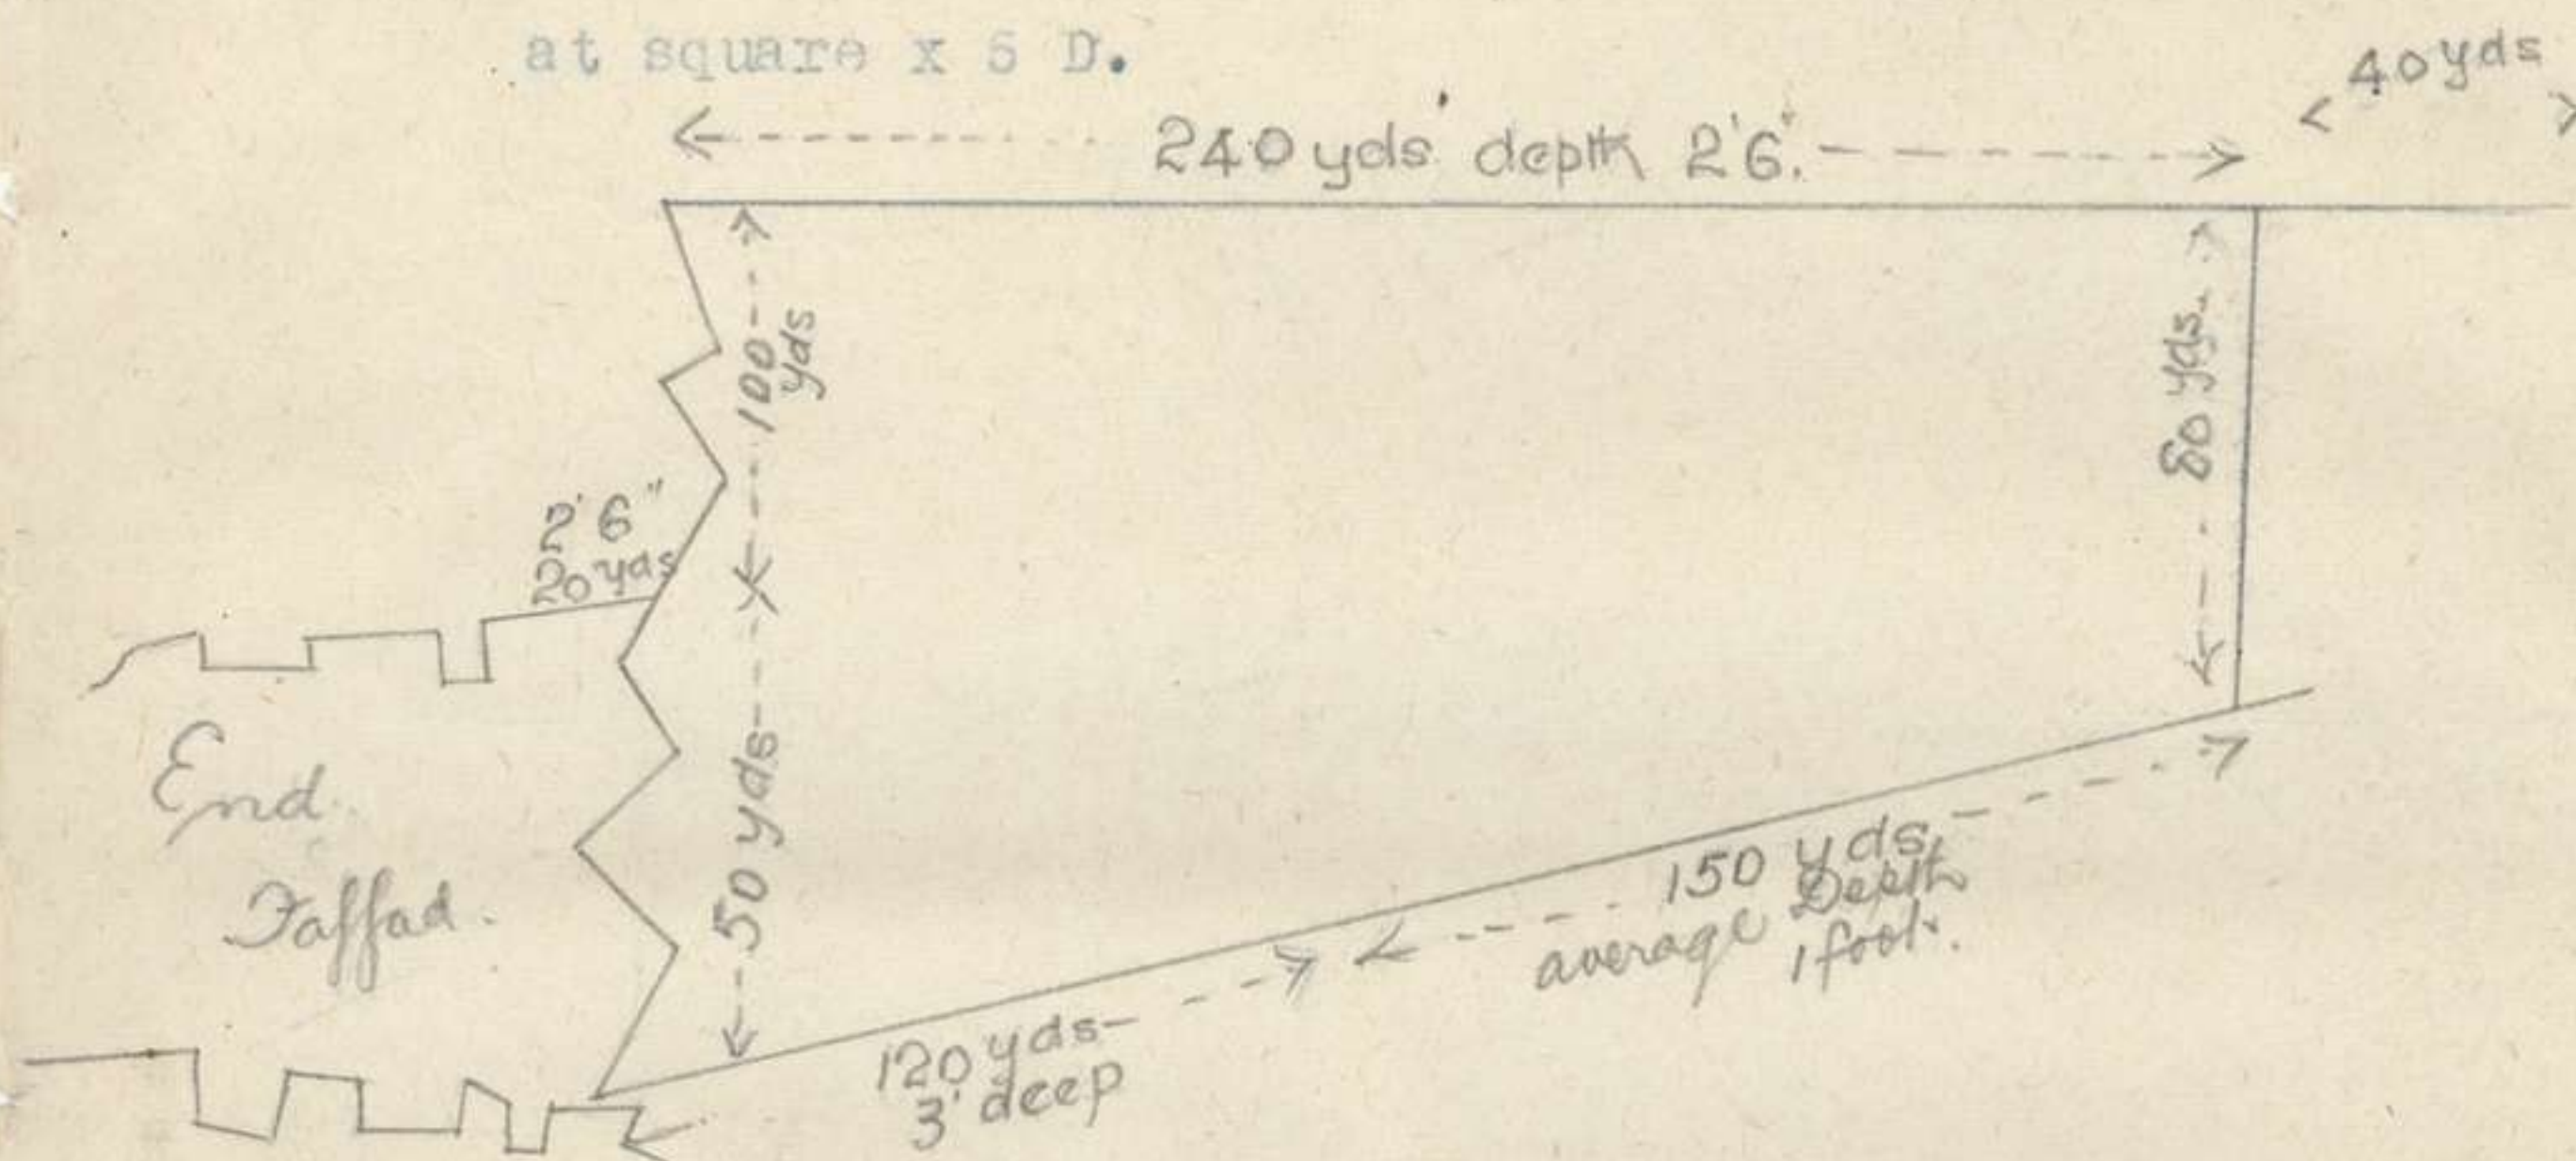 at square x 5 D.
40 yds
240 yds depth 2'6".
100 yds
80 yds.
2'6"
20 yds
End.
Faffad.
50 yds
150 yds
average Depth
1 foot.
120 yds
3' deep